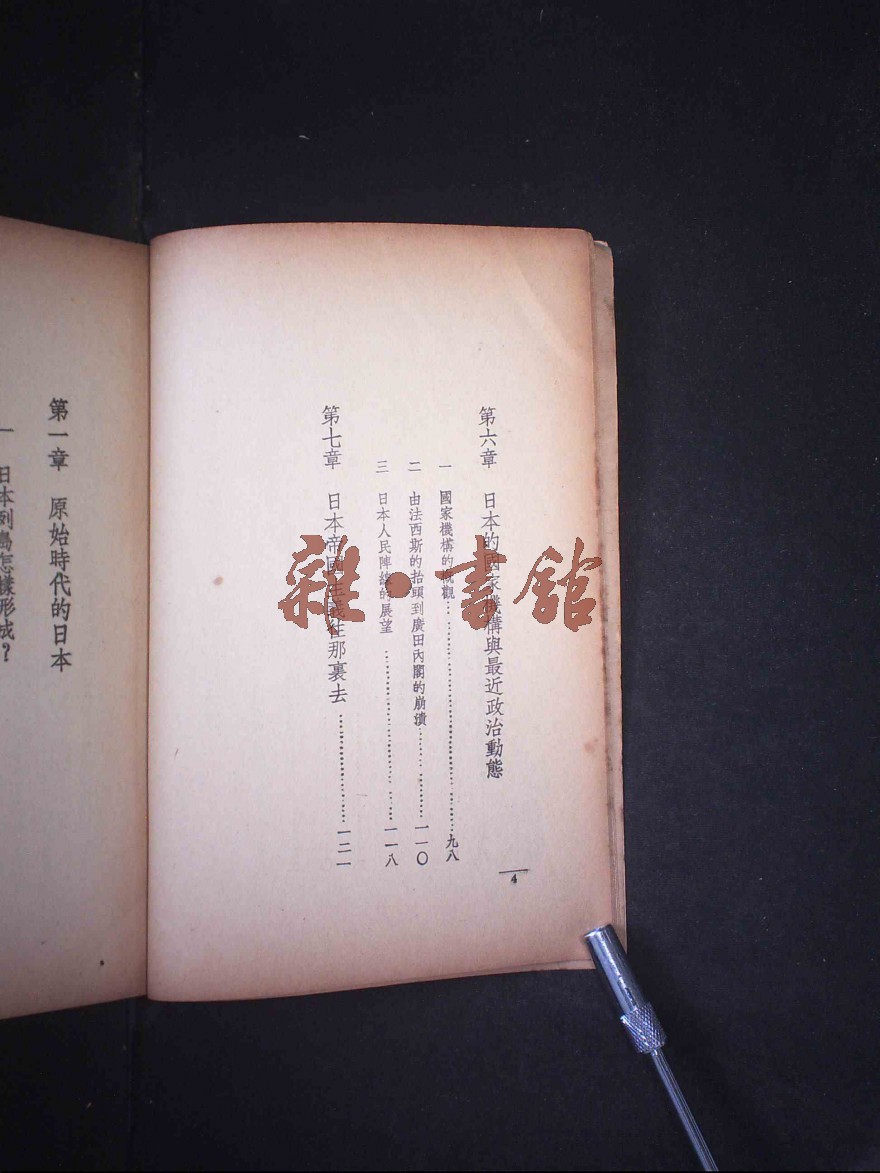 第六章 日本的國家機構與最近政治動態
一 國家機構的概觀……………………九八
二 由法西斯的抬頭到廣田內閣的崩潰…………一一〇
三 日本人民陣線的展望……………………一一八
第七章 日本帝國主義往那裏去……………………一二一
4
第一章 原始時代的日本
一 日本列島怎樣形成？
雜·書館